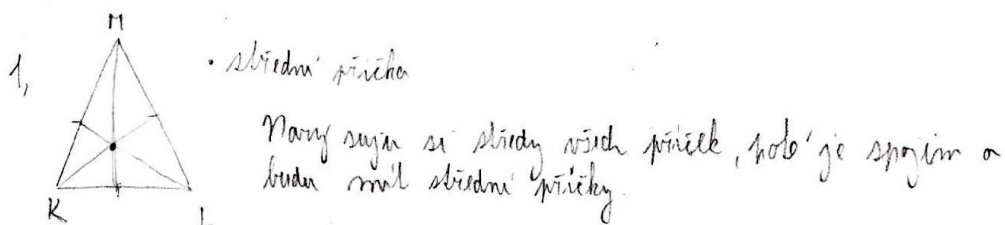 M
1,
• střední příčka
Narysuju si středy všech příček, poté je spojím a
budu mít střední příčky.
K L